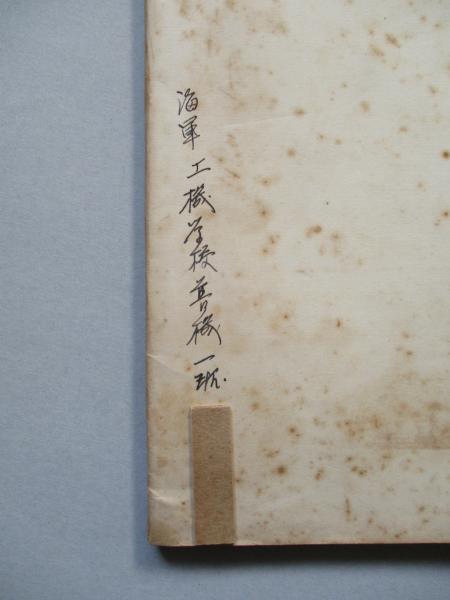 海軍工機学校普機一班.